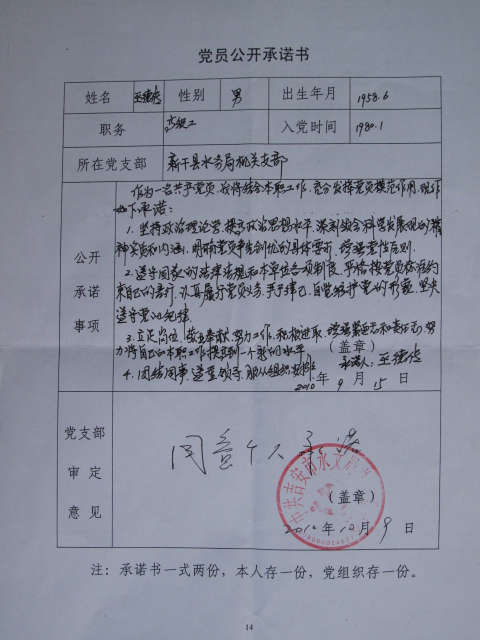 党员公开承诺书
姓名 王德志 性别 男 出生年月 1958.6
职务 高级工 入党时间 1980.1
所在党支部 新干县水务局机关支部
公开
承诺
事项
作为一名共产党员,我将结合本职工作,充分发挥党员模范作用,现作
如下承诺:
1.坚持政治理论学习,提高政治思想水平,深刻领会科学发展观的精
神实质和内涵,明确党员争先创优的具体要求,增强党性原则。
2.遵守国家的法律法规和本单位各项制度,严格按党员标准约
束自己的言行,认真履行党员义务,严于律己,自觉维护党的形象,坚决
遵守党的纪律。
3.立足岗位,爱岗奉献,努力工作,积极进取,增强紧迫感和责任感,努
力将自己的本职工作提高到一个新的水平。
4.团结同事,遵重领导,服从组织安排。
(盖章) 承诺人:王德志
2010年9月15日
党支部
审定
意见
同意个人承诺
中共吉安市水文局
(盖章)
2010年10月9日
注:承诺书一式两份,本人存一份,党组织存一份。
14